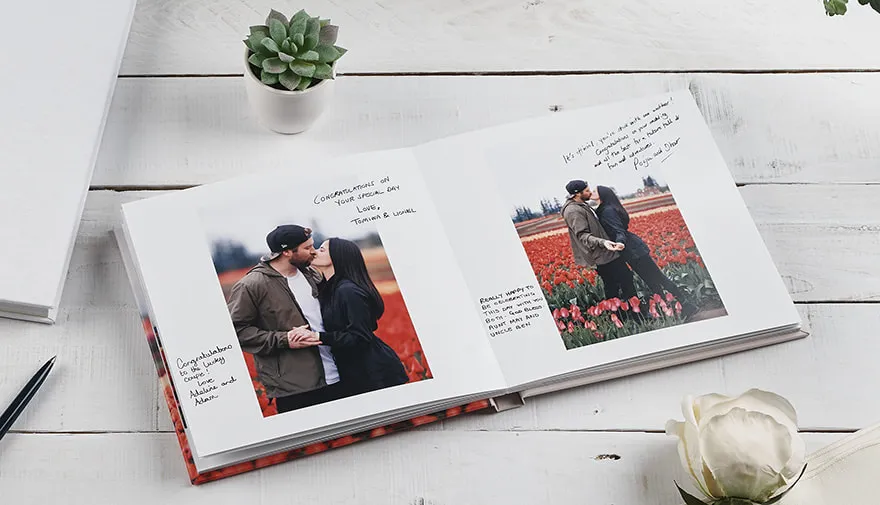 CONGRATULATIONS ON
YOUR SPECIAL DAY
LOVE,
TOMIWA & LIONEL
Congratulations
to the lucky
couple!
Love
Adeline and
Adam
It's time! you're stuck with one another!
Congratulations on your wedding
and all the best for a future full of
fun and adventures.
and
REALLY HAPPY TO
BE CELEBRATING
THIS DAY WITH YOU
BOTH. GOD BLESS
AUNT MAY AND
UNCLE BEN